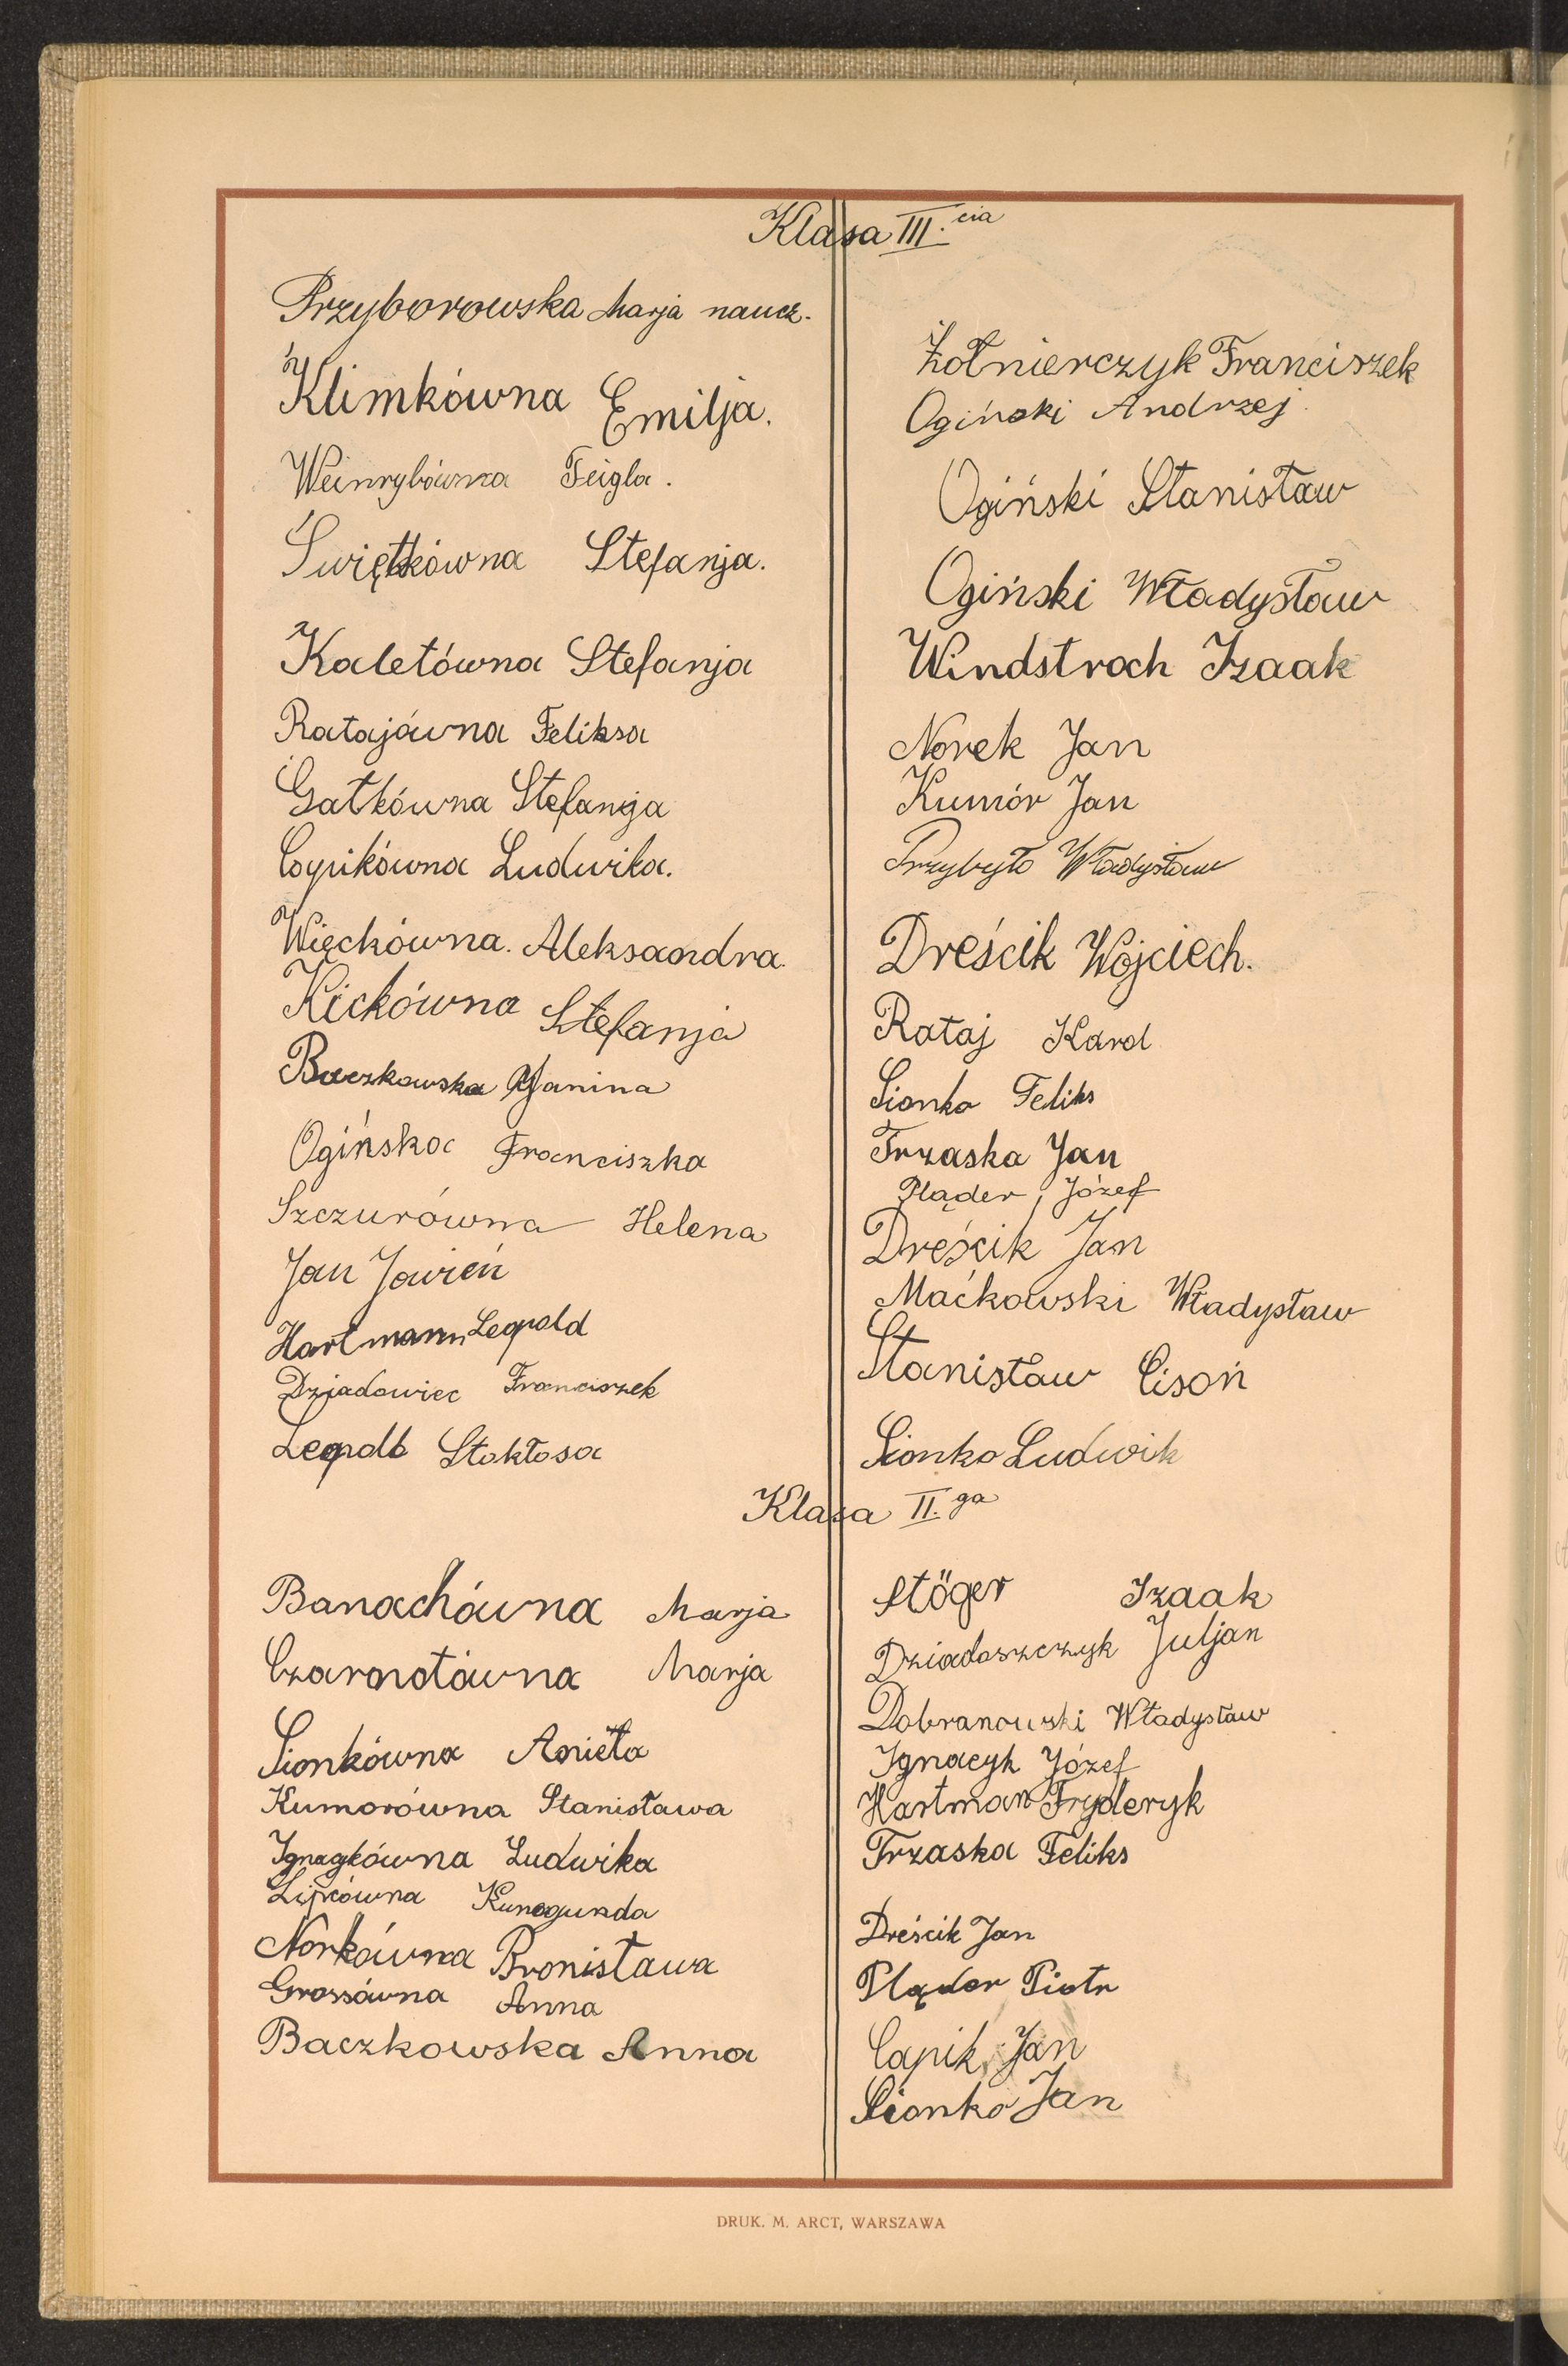 Klasa III.cia
Przyborowska Marja naucz.
Klimkówna Emilja.
Weinrybówna Feigla.
Świętkówna Stefanja.
Kaletówna Stefanja
Ratajówna Feliksa
Gatkówna Stefanja
Copikówna Ludwika.
Więckówna. Aleksandra.
Kickówna Stefanja
Baczkowska Janina
Ogińska Franciszka
Szczurówna Helena
Jan Jawień
Hartmann Leopold
Dziadowiec Franciszek
Leopold Stokłosa
Żołnierczyk Franciszek
Ogiński Andrzej
Ogiński Stanisław
Ogiński Władysław
Windstroch Izaak
Norek Jan
Kumór Jan
Przybyło Władysław
Dreścik Wojciech.
Rataj Karol
Sionko Feliks
Trzaska Jan
Pląder Józef
Dreścik Jan
Maćkowski Władysław
Stanisław Cisoń
Sionko Ludwik
Klasa II.ga
Banachówna Marja
Czarnotówna Marja
Sionkówna Anieła
Kumorówna Stanisława
Ignaykówna Ludwika
Lipcówna Kunegunda
Norkówna Bronisława
Grossówna Anna
Baczkowska Anna
Stöger Izaak
Dziadoszczyk Juljan
Dobranowski Władysław
Ignacyk Józef
Hartman Fryderyk
Trzaska Feliks
Dreścik Jan
Pląder Piotr
Capik Jan
Sionko Jan
DRUK. M. ARCT, WARSZAWA